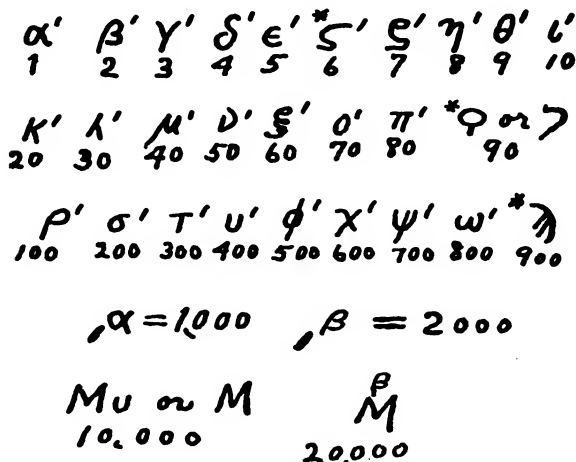 α′ β′ γ′ δ′ ϵ′ *ϛ′ ξ′ η′ θ′ ι′
1 2 3 4 5 6 7 8 9 10
κ′ λ′ μ′ ν′ ξ′ ο′ π′ *Ϙ or
20 30 40 50 60 70 80 90
ρ′ σ′ τ′ υ′ ϕ′ χ′ ψ′ ω′ *ϡ
100 200 300 400 500 600 700 800 900
͵α = 1,000 ͵β = 2000
Mυ or M β
M
10,000 20,000